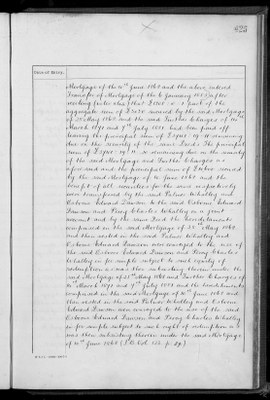 Mortgage of the 10th June 1868 and the above recited
Transfer of Mortgage of the 6 January 1882) after
reciting (inter alia) that £1201 . . part of the
aggregate sum of £ secured by the said Mortgage
of 22nd May 1868 and the said Further Charges of
March 1871 and 7th July 1881 had been paid off
leaving the principal sum of £ remaining
due on the security of the same Deeds The principal
sum of £ remaining due on the security
of the said Mortgage and Further Charges as
aforesaid and the principal sum of £ secured
by the said Mortgage of 10 June 1868 and the
benefit of all securities for the same respectively
were transferred by the said Palmer Whalley and
Osborne Edward Dawson to the said Osborne Edward
Dawson and Percy Charles Whatley on a joint
account and by the same Deed the hereditaments
comprised in the said Mortgage of 22nd May 1868
and then vested in the said Palmer Whalley and
Osborne Edward Dawson were conveyed to the use of
the said Osborne Edward Dawson and Percy Charles
Whatley in fee simple subject to such equity of
redemption as was then subsisting therein under the
said Mortgage of 22nd May 1868 and Further Charges of
March 1871 and 7th July 1881 and the hereditaments
comprised in the said Mortgage of 10th June 1868 and
then vested in the said Palmer Whalley and Osborne
Edward Dawson were conveyed to the use of the said
Osborne Edward Dawson and Percy Charles Whatley
in fee simple subject to such right of redemption as
was then subsisting therein under the said Mortgage
of 10th June 1868